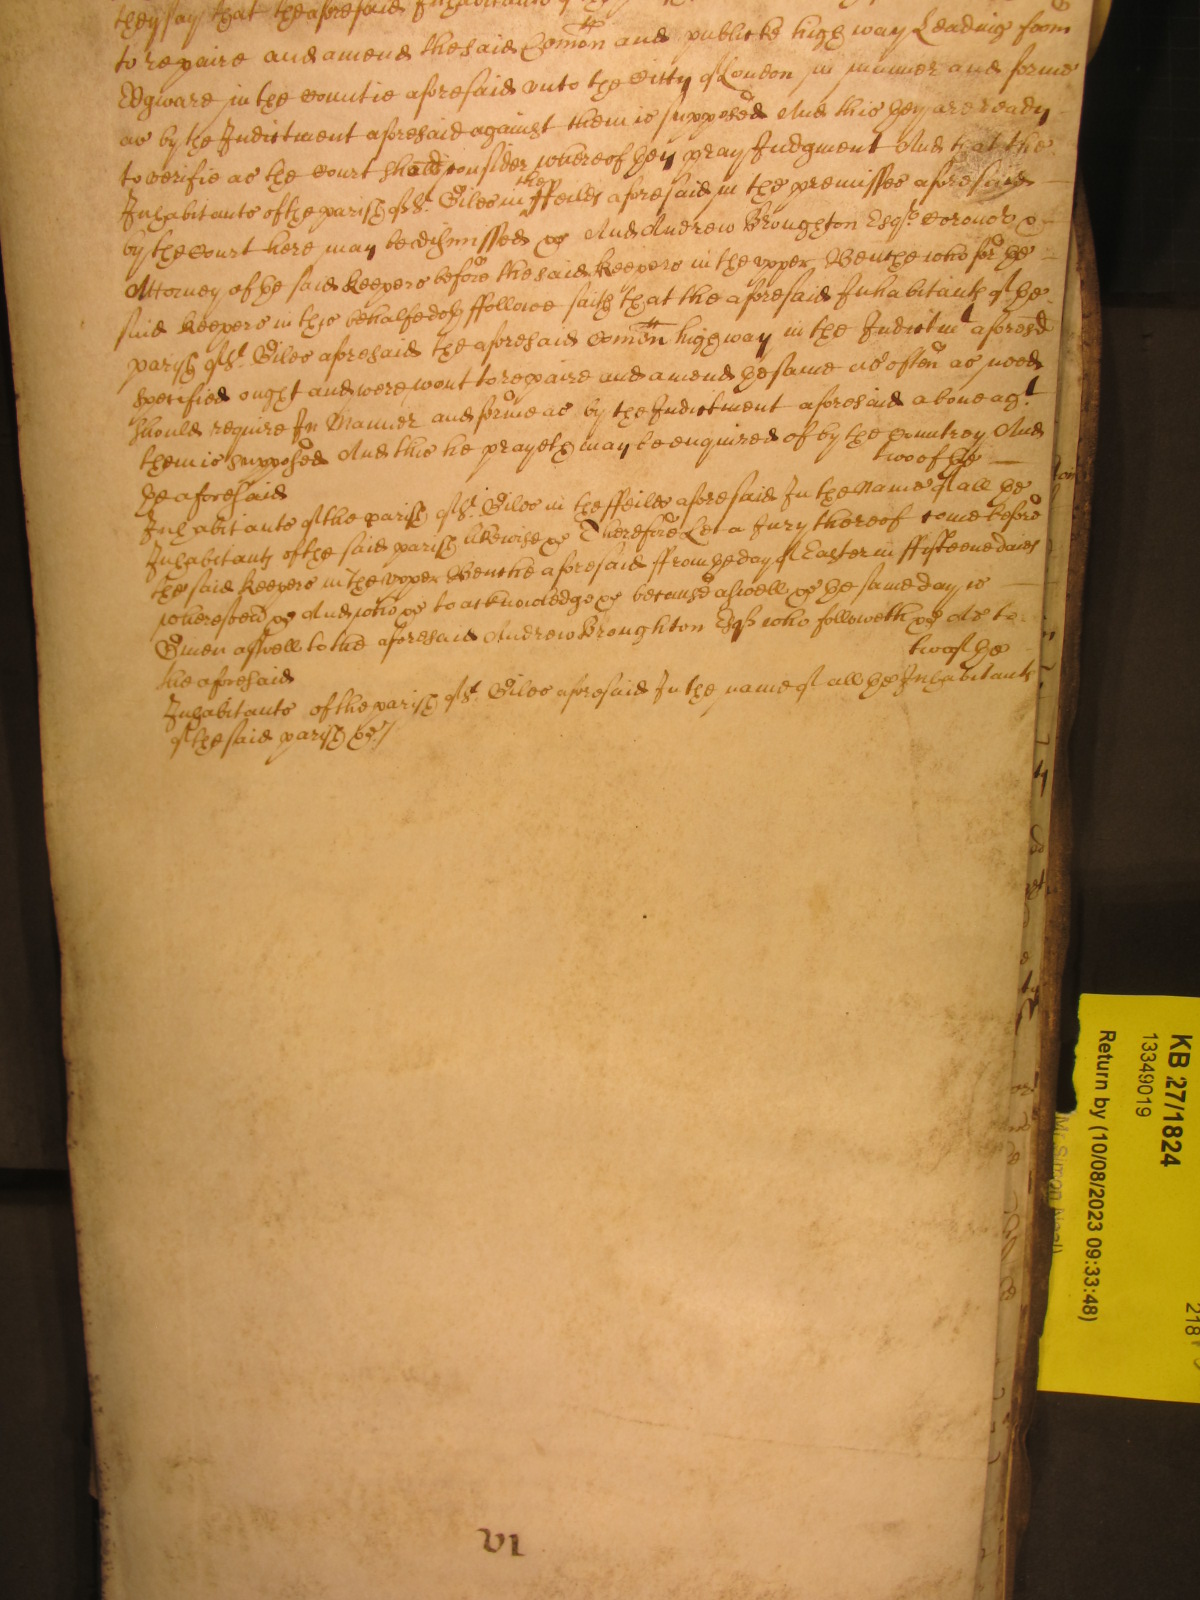 they say that the aforesaid Inhabitants
to repaire and amend the said Com̃on and publicke high way Leading from
Edgware in the Countie aforesaid vnto the Citty of London in manner and forme
as by the Indictment aforesaid against them is supposed And this they are ready
to verifie as the Court shall consider whereof they pray Judgment And that the
Inhabitants of the parish of St. Giles in the ffeilds aforesaid in the premisses aforesaid
by the Court here may be dismissed &c And Andrew Broughton Esqr. Coronor &
Attorney of the said Keepers before the said Keepers in the vpper Benche who for the
said Keepers in this behalfe doth ffollowe saith that the aforesaid Inhabitants of the
parish of St. Giles aforesaid the aforesaid Com̃on highway in the Indictmt aforesd
specified ought and were wont to repaire and amend the same as often as need
should require In Manner and forme as by the Indictment aforesaid aboue agt
them is supposed And this he prayeth may be enquired of by the Countrey And
the aforesaid two of the
Inhabitants of the parish of St. Giles in the ffeilds aforesaid In the Name of all the
Inhabitants of the said parish likewise &c Therefore Let a Jury thereof come before
the said Keepers in the vpper Benche aforesaid ffrom the day of Easter in ffifteene daies
wheresoeuer &c And who &c to acknowledge &c because aswell &c the same day is
Giuen aswell to the aforesaid Andrew Broughton Esqr who followeth &c As to
the aforesaid two of the
Inhabitants of the parish of St. Giles aforesaid In the name of all the Inhabitants
of the said parish &c
VI
KB 27/1824
13349019
Return by (10/08/2023 09:33:48)